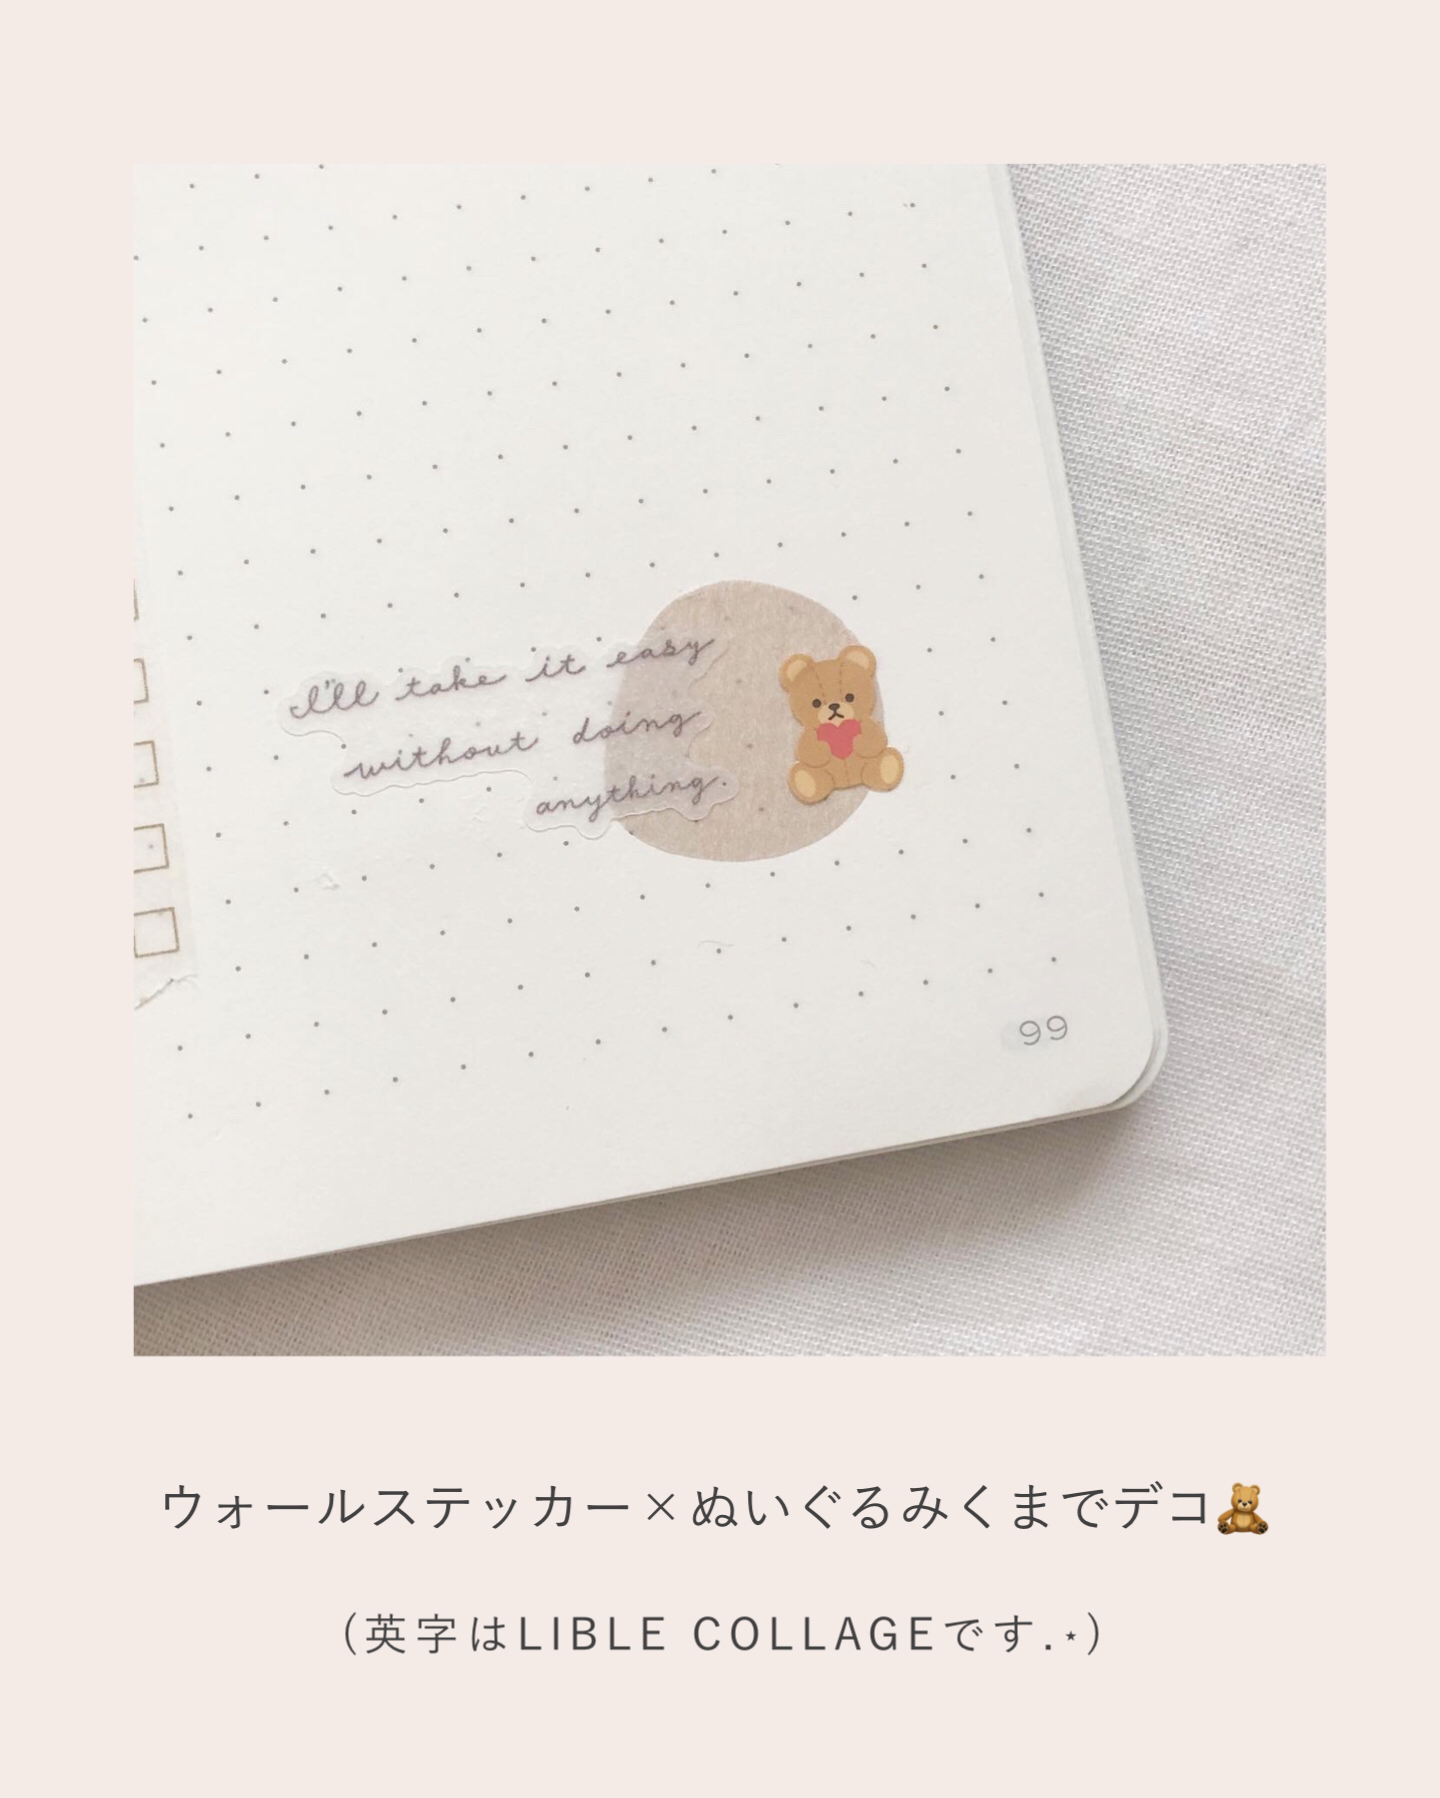 I'll take it easy
without doing
anything.
99
ウォールステッカー×ぬいぐるみくまでデコ🧸
(英字はLIBLE COLLAGEです.⋆)